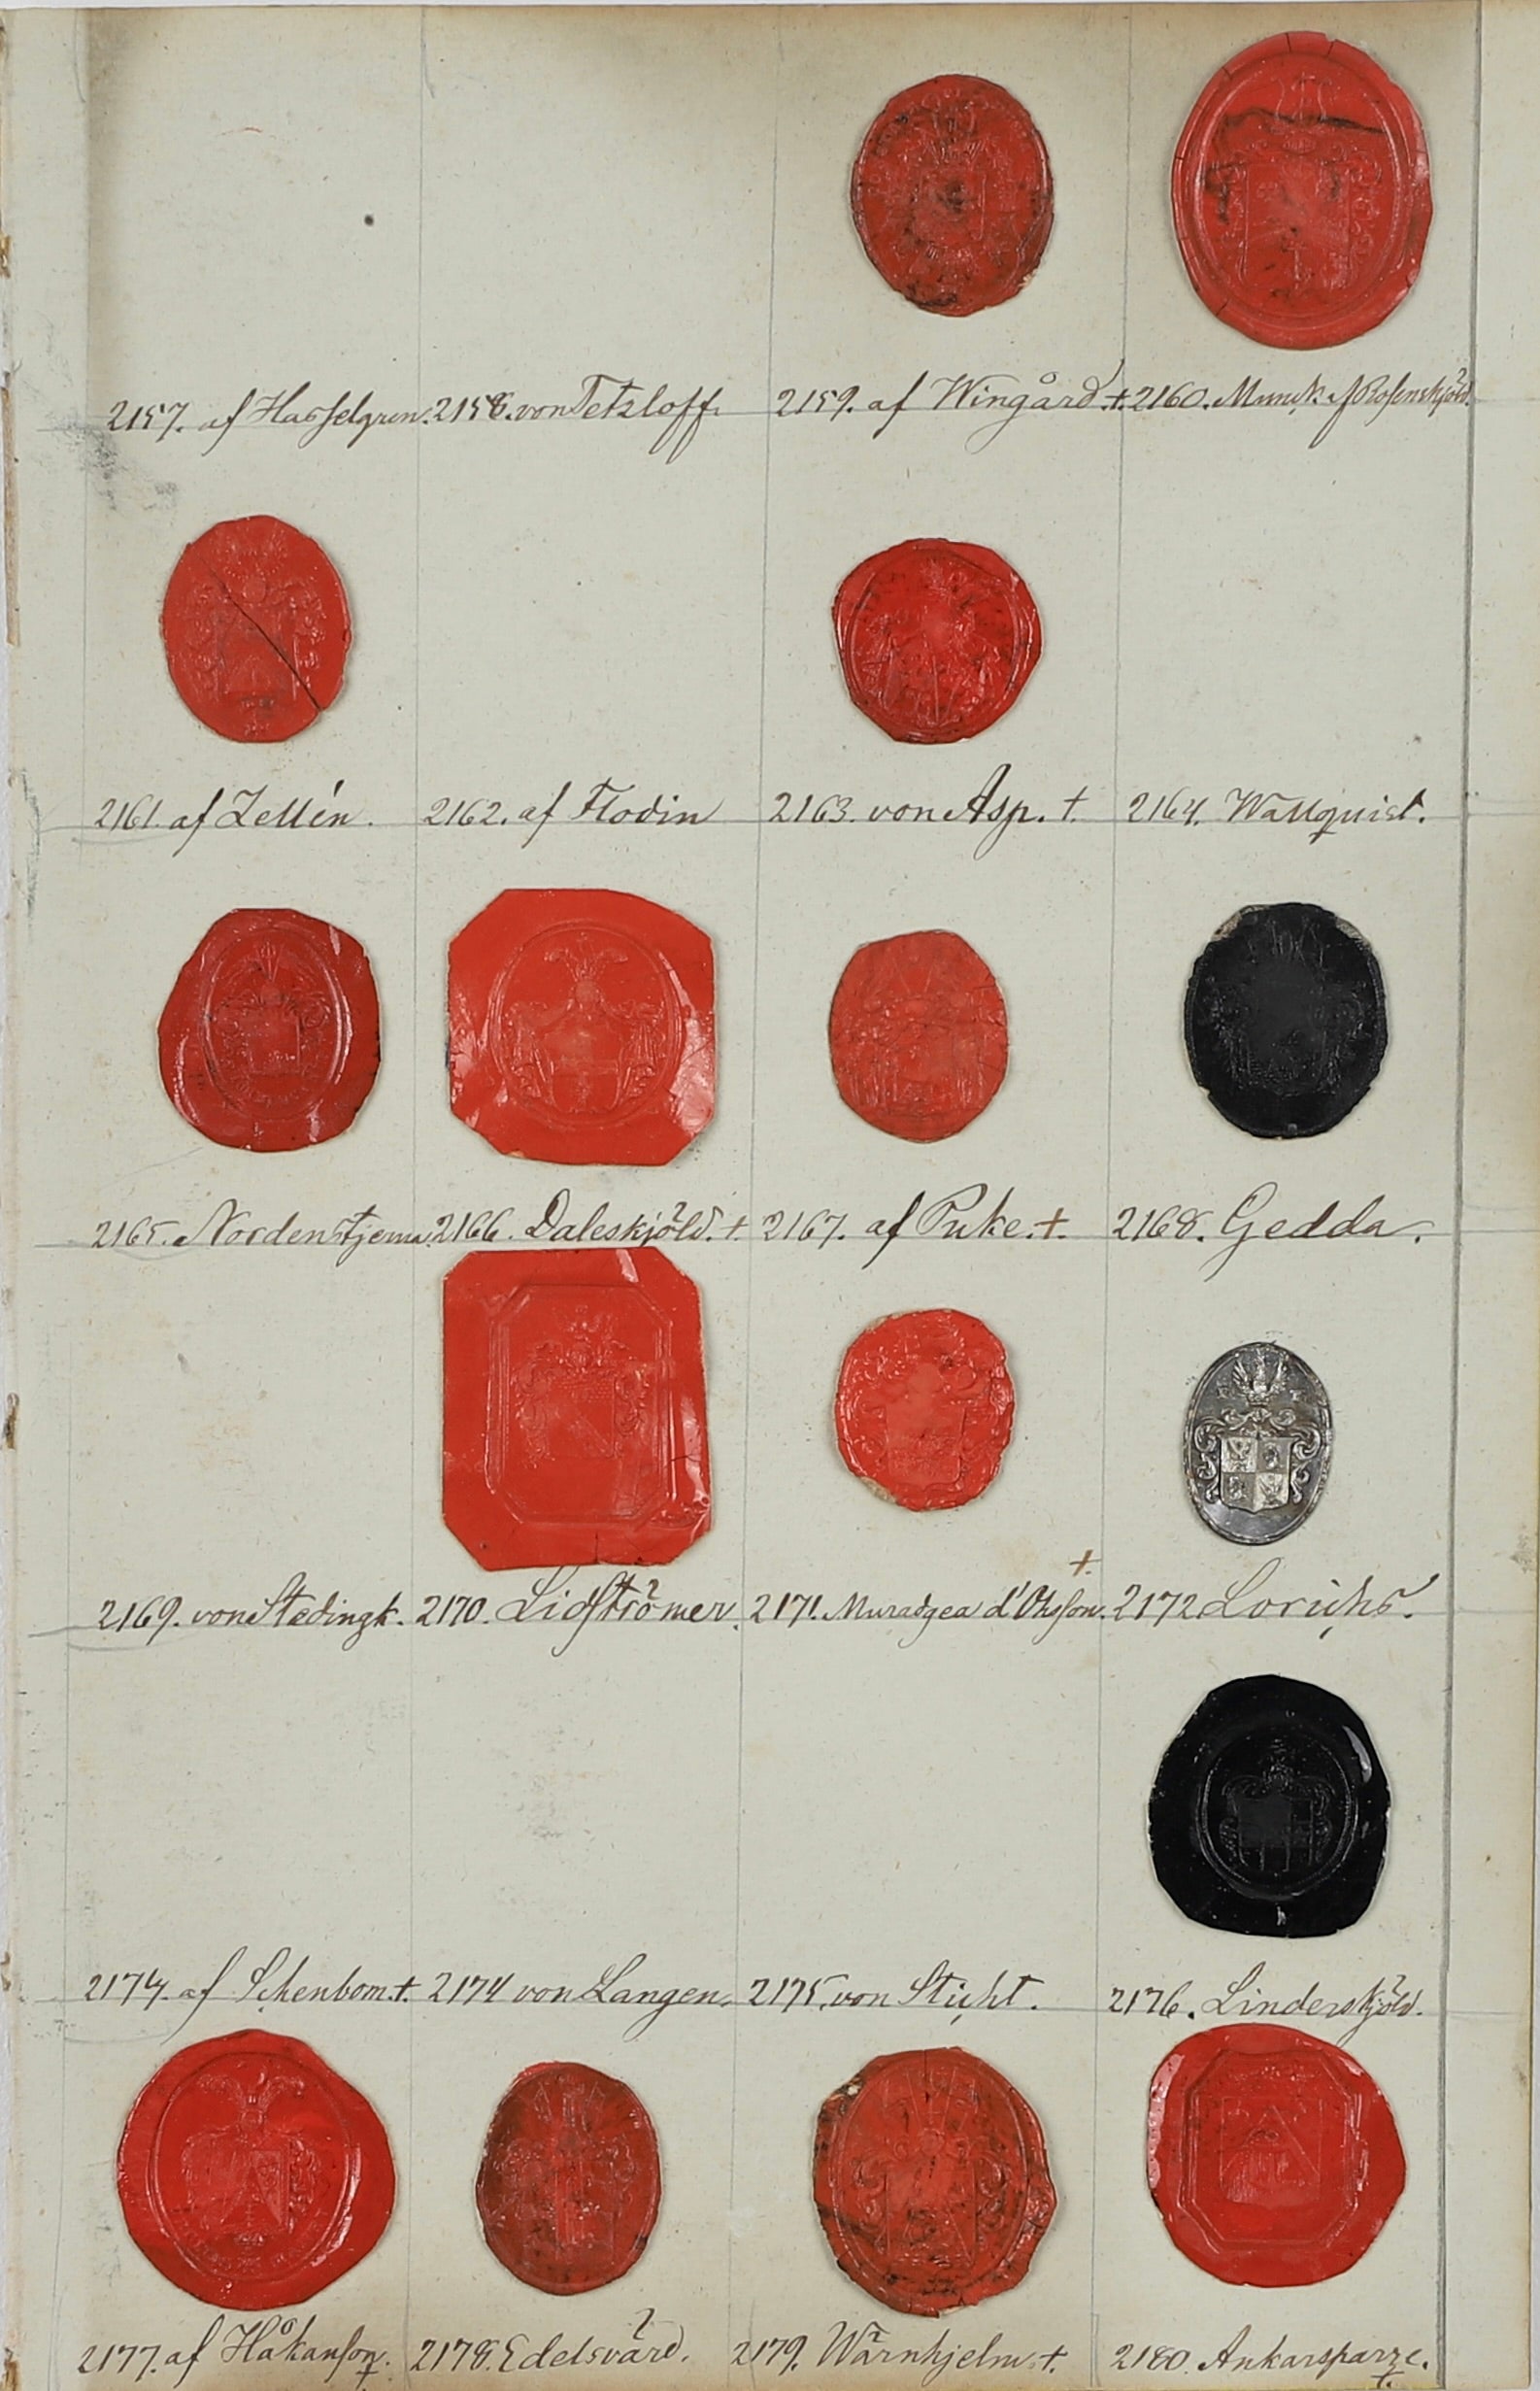 2157. af Hasselgren. 2158. von Tetzloff. 2159. af Wingård. + 2160. Munck af Rosenskjöld.
2161. af Zellén. 2162. af Flodin 2163. von Asp. + 2164. Wallquist.
2165. Nordenstjerna. 2166. Daleskjöld. + 2167. af Puke. + 2168. Gedda.
2169. von Stedingk. 2170. Lidströmer. 2171. Muradgea d'Ohsson. + 2172 Lorichs.
2174. af Schenbom. + 2174 von Langen. 2175. von Sticht. 2176. Linderskjöld.
2177. af Håkanson. + 2178. Edelsvärd. 2179. Wärnhjelm +. 2180. Ankarsparre. +